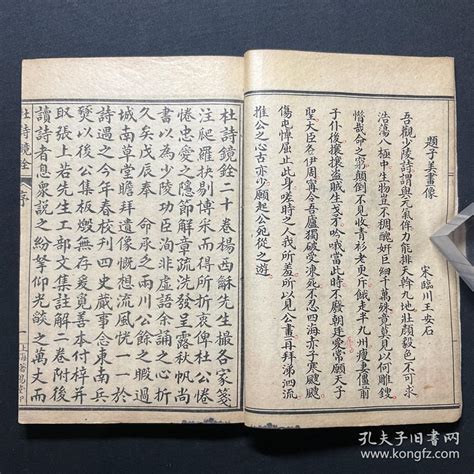 題子美畫像
宋 臨川王安石
吾觀少陵詩謂與元氣侔力能排天斡九地壯顏毅色不可求
浩蕩八極中生物豈不稠醜妍巨細千萬殊竟莫見以何雕鎪
惜哉命之窮顛倒不見收青衫老更斥餓走半九州瘦妻僵前
子仆後攘攘盜賊森戈矛吟哦當此時不廢朝廷憂常願天子
聖大臣各伊周寧令吾廬獨破受凍死不忍四海赤子寒颼颼
傷屯悼屈止此身嗟時之人我所羞所以見公畫再拜涕泗流
推公之心古亦少願起公死從之遊
杜詩鏡銓二十卷楊西龢先生撮各家箋
注爬羅抉剔博采而得所折衷俾杜公惓
惓忠愛之隱節解章疏洗發呈露秋帆尚
書以為少陵功臣洵非虛語余誦之心折
久矣戊辰奉 命承之兩川公餘之暇過
城南草堂瞻拜遺像慨想流風恍一一於
詩遇之今年春校刊四史蕆事念東南兵
燹以後公集板燬無存爰善本付梓并
取張上若先生工部文集註解二卷附後
讀詩者息衆說之紛拏仰光燄之萬丈而
杜詩鏡銓 序 一
孔夫子旧书网
www.kongfz.com